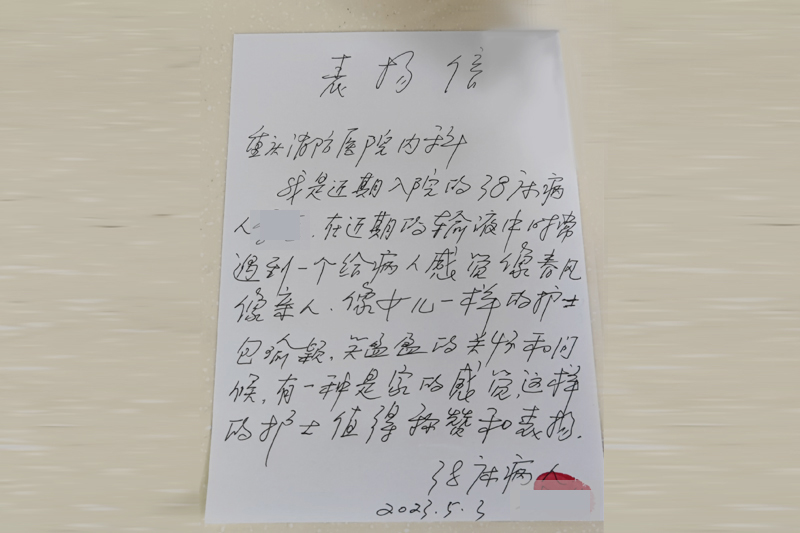 表扬信
重庆消防医院内科
我是近期入院的38床病
人 . 在近期的输液中时常
遇到一个给病人感觉像春风
像亲人. 像女儿一样的护士
包瑜颖. 笑盈盈的关怀和问
候, 有一种是家的感觉. 这样
的护士值得称赞和表扬.
38床病人
2023.5.3